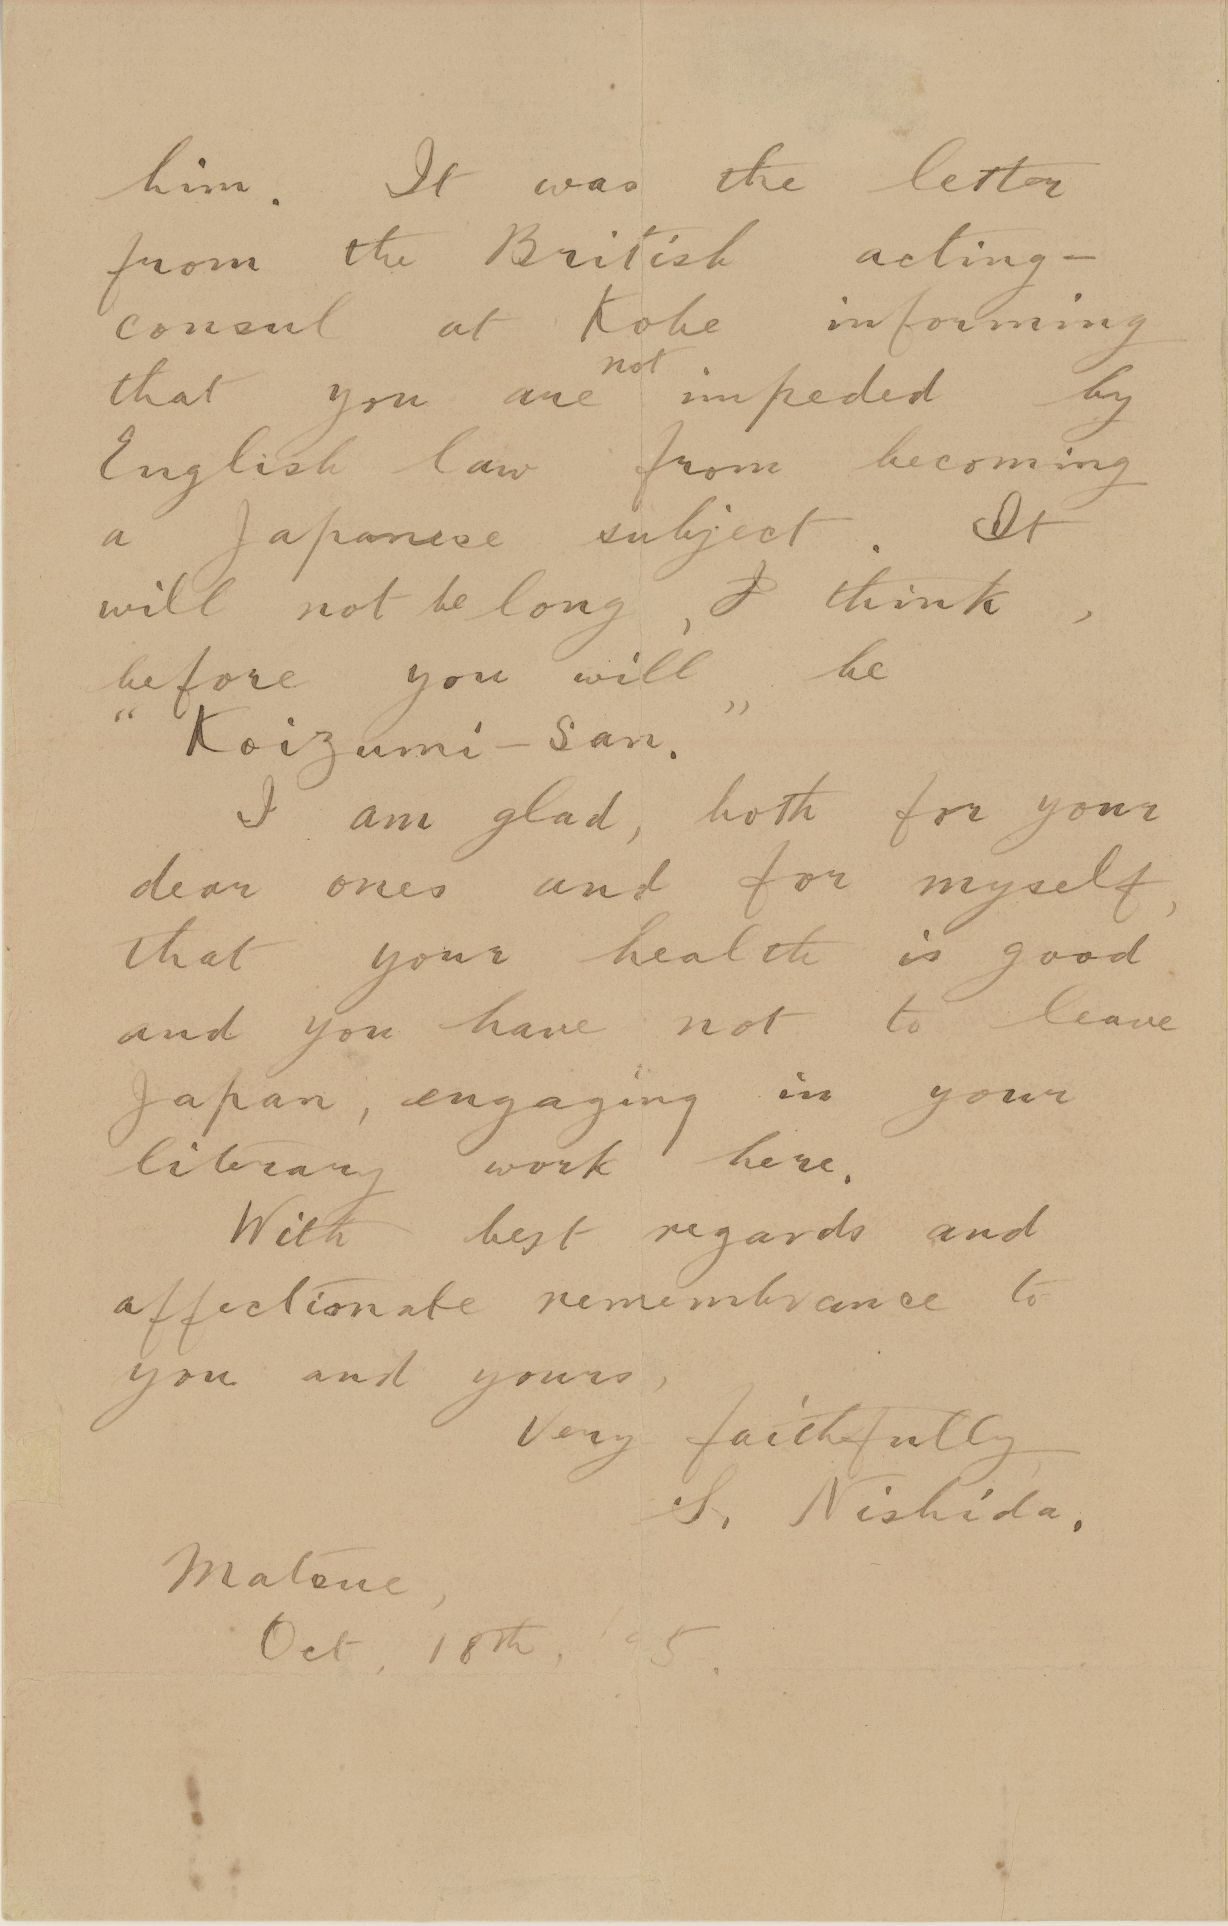 him. It was the letter
from the British acting-
consul at Kobe informing
that you are not impeded by
English law from becoming
a Japanese subject. It
will not be long, I think,
before you will be
"Koizumi-San."
I am glad, both for your
dear ones and for myself,
that your health is good
and you have not to leave
Japan, engaging in your
literary work here.
With best regards and
affectionate remembrance to
you and yours,
Very faithfully
S. Nishida.
Matsue,
Oct. 18th, '95.